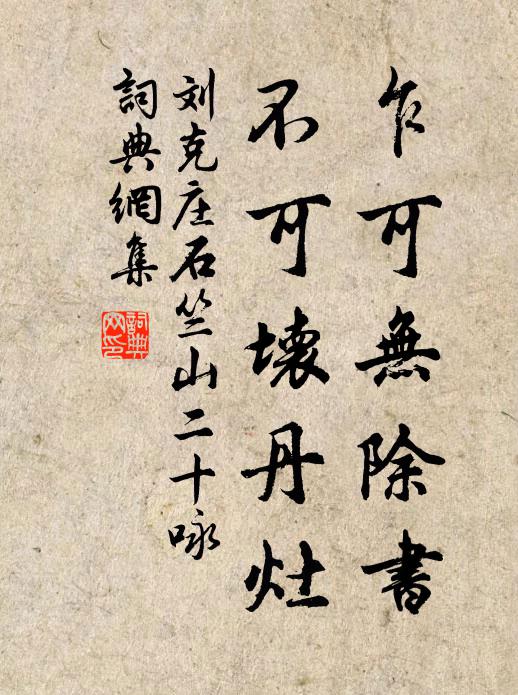 乍可無除書
不可壞丹灶
刘克庄石竺山二十咏
詞典網集
詞典網印